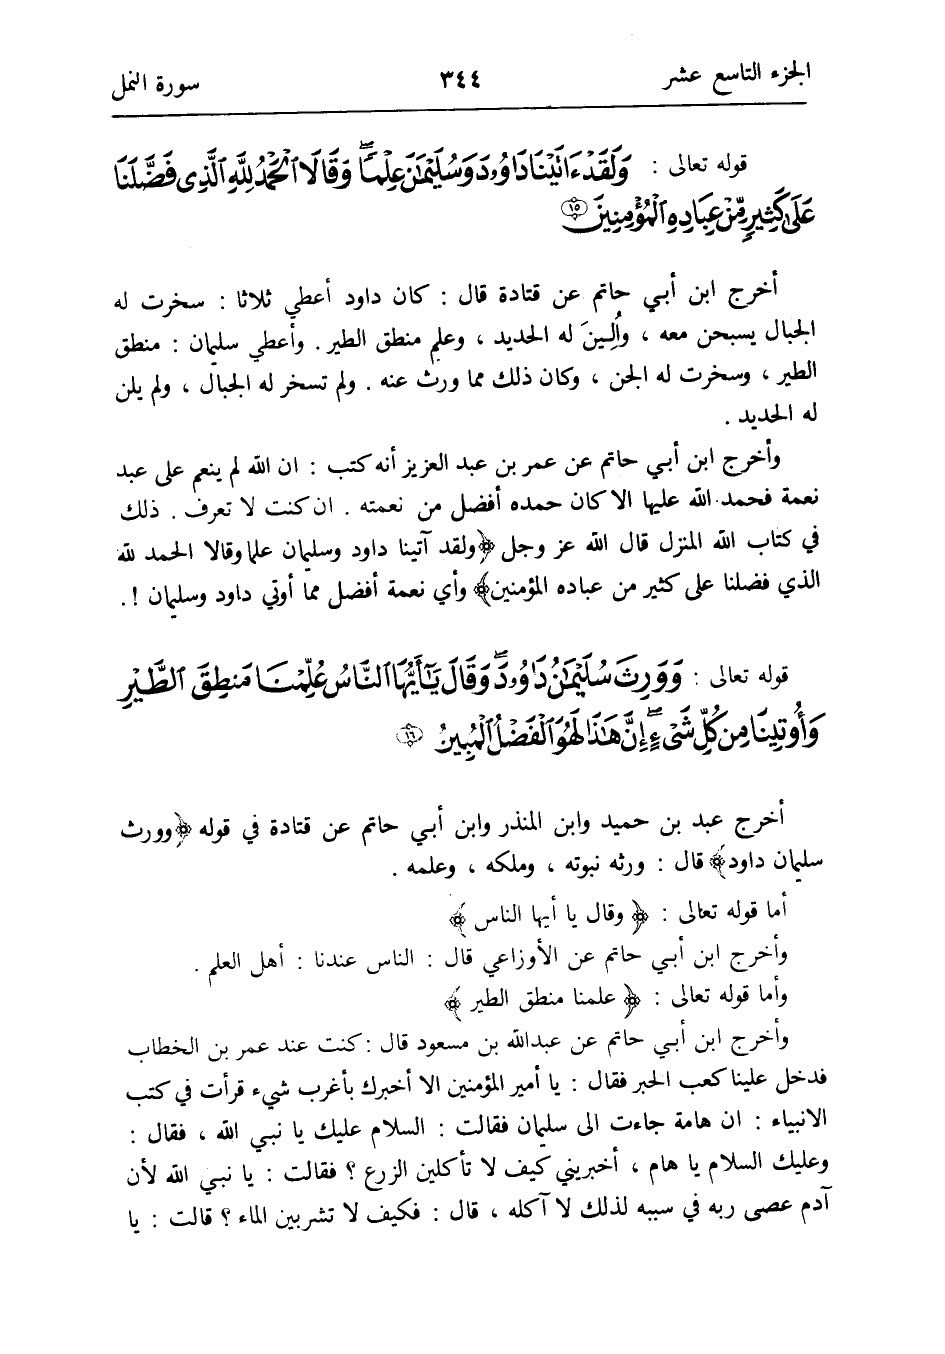 الجزء التاسع عشر ٣٤٤ سورة النمل
قوله تعالى : وَلَقَدْ ءَاتَيْنَا دَاوُۥدَ وَسُلَيْمَٰنَ عِلْمًا ۖ وَقَالَا ٱلْحَمْدُ لِلَّهِ ٱلَّذِى فَضَّلَنَا
عَلَىٰ كَثِيرٍ مِّنْ عِبَادِهِ ٱلْمُؤْمِنِينَ ١٥
أخرج ابن أبي حاتم عن قتادة قال : كان داود أعطي ثلاثا : سخرت له
الجبال يسبحن معه ، وأُلِينَ له الحديد ، وعلم منطق الطير . وأعطي سليمان : منطق
الطير ، وسخرت له الجن ، وكان ذلك مما ورث عنه . ولم تسخر له الجبال ، ولم يلن
له الحديد .
وأخرج ابن أبي حاتم عن عمر بن عبد العزيز أنه كتب : ان الله لم ينعم على عبد
نعمة فحمد الله عليها الا كان حمده أفضل من نعمته . ان كنت لا تعرف . ذلك
في كتاب الله المنزل قال الله عز وجل ﴿ولقد آتينا داود وسليمان علما وقالا الحمد لله
الذي فضلنا على كثير من عباده المؤمنين﴾ وأي نعمة أفضل مما أوتي داود وسليمان !.
قوله تعالى : وَوَرِثَ سُلَيْمَٰنُ دَاوُۥدَ ۖ وَقَالَ يَٰٓأَيُّهَا ٱلنَّاسُ عُلِّمْنَا مَنطِقَ ٱلطَّيْرِ
وَأُوتِينَا مِن كُلِّ شَىْءٍ ۖ إِنَّ هَٰذَا لَهُوَ ٱلْفَضْلُ ٱلْمُبِينُ ١٦
أخرج عبد بن حميد وابن المنذر وابن أبي حاتم عن قتادة في قوله ﴿وورث
سليمان داود﴾ قال : ورثه نبوته ، وملكه ، وعلمه .
أما قوله تعالى : ﴿ وقال يا أيها الناس ﴾
وأخرج ابن أبي حاتم عن الأوزاعي قال : الناس عندنا : أهل العلم .
وأما قوله تعالى : ﴿ علمنا منطق الطير ﴾
وأخرج ابن أبي حاتم عن عبدالله بن مسعود قال : كنت عند عمر بن الخطاب
فدخل علينا كعب الحبر فقال : يا أمير المؤمنين الا أخبرك بأغرب شيء قرأت في كتب
الانبياء : ان هامة جاءت الى سليمان فقالت : السلام عليك يا نبي الله ، فقال :
وعليك السلام يا هام ، أخبريني كيف لا تأكلين الزرع ؟ فقالت : يا نبي الله لأن
آدم عصى ربه في سببه لذلك لا آكله ، قال : فكيف لا تشربين الماء ؟ قالت : يا